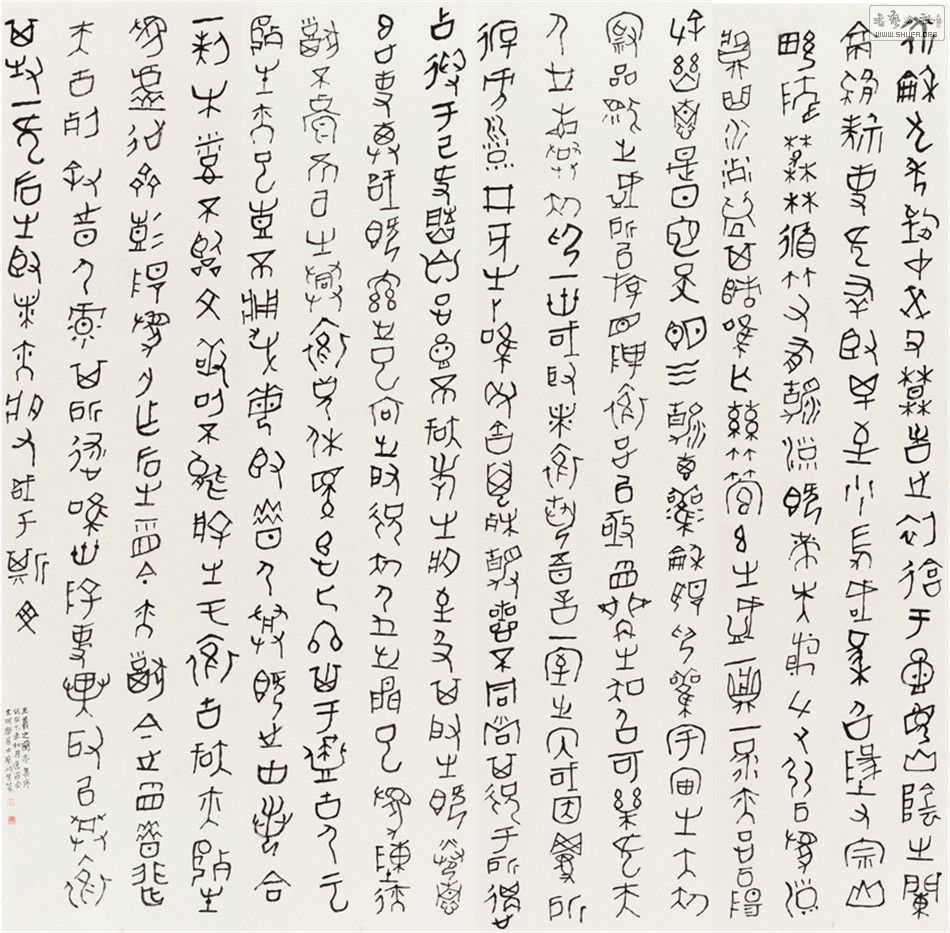 永和九年歲在癸丑暮春之初會于會稽山陰之蘭
亭脩禊事也群賢畢至少長咸集此地有崇山
峻領茂林脩竹又有清流激湍映帶左右引以為流
觴曲水列坐其次雖無絲竹管弦之盛一觴一詠亦足以暢
敘幽情是日也天朗氣清惠風和暢仰觀宇宙之大俯
察品類之盛所以遊目騁懷足以極視聽之娛信可樂也夫
人之相與俯仰一世或取諸懷抱悟言一室之內或因寄所
託放浪形骸之外雖趣舍萬殊靜躁不同當其欣於所遇
暫得于己快然自足不知老之將至及其所之既倦情
隨事遷感慨係之矣向之所欣俛仰之間已為陳跡
猶不能不以之興懷況脩短隨化終期于盡古人云
死生亦大矣豈不痛哉每攬昔人興感之由若合
一契未嘗不臨文嗟悼不能喻之於懷固知一死生
為虛誕齊彭殤為妄作後之視今亦由今之視昔悲
夫故列敘時人錄其所述雖世殊事異所以興懷
其致一也後之攬者亦將有感于斯文
王羲之蘭亭集序
WWW.SHUFA.ORG